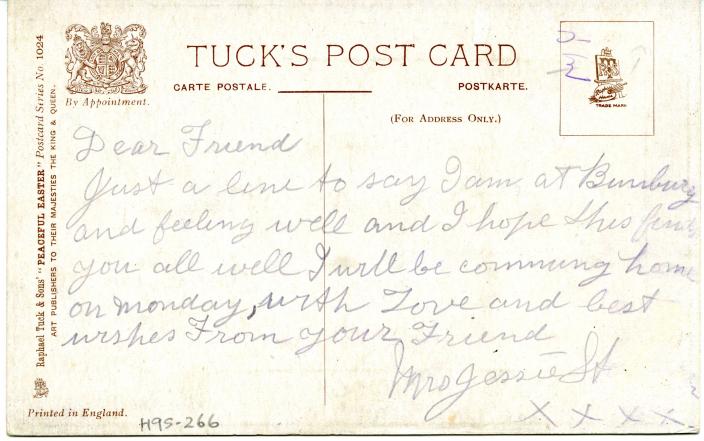 TUCK'S POST CARD
CARTE POSTALE.
POSTKARTE.
By Appointment.
(FOR ADDRESS ONLY.)
TRADE MARK
Raphael Tuck & Sons' "PEACEFUL EASTER" Postcard Series No. 1024
ART PUBLISHERS TO THEIR MAJESTIES THE KING & QUEEN.
Dear Friend
Just a line to say I am at Bunbury
and feeling well and I hope this finds
you all well I will be comming home
on monday, with Love and best
wishes From your Friend
Mrs Jessie St
X X X X
Printed in England.
H95-266